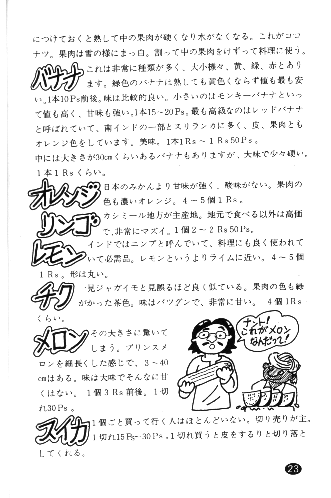 につけておくと熟して中の果肉が硬くなり水がなくなる。これがココ
ナツ。果肉は雪の様にまっ白。割って中の果肉をけずって料理に使う。
バナナ これは非常に種類が多く、大小様々、黄、緑、赤とあり
ます。緑色のバナナは熟しても黄色くならず値も最も安
い。1本10Ps前後。味は比較的良い。小さいのはモンキーバナナといっ
て値も高く、甘味も強い。1本15~20Ps。最も高級なのはレッドバナナ
と呼ばれていて、南インドの一部とスリランカに多く、皮、果肉とも
オレンジ色をしています。美味。1本1Rs~1Rs50Ps。
中には大きさが30cmくらいあるバナナもありますが、大味で少々硬い。
1本1Rsくらい。
オレンジ 日本のみかんより甘味が強く、酸味がない。果肉の
色も濃いオレンジ。4~5個1Rs。
リンゴ カシミール地方が主産地。地元で食べる以外は高価
で、非常にマズイ。1個2~2Rs50Ps。
レモン インドではニンブと呼んでいて、料理にも良く使われて
いて必需品。レモンというよりライムに近い。4~5個
1Rs。形は丸い。
チク 一見ジャガイモと見誤るほど良く似ている。果肉の色も緑
がかった茶色。味はバツグンで、非常に甘い。4個1Rs
くらい。
メロン その大きさに驚いて
しまう。プリンスメ
ロンを細長くした感じで、3~40
cmはある。味は大味でそんなに甘
くはない。1個3Rs前後。1切
れ30Ps。
ナント!
これがメロン
なんだって!
スイカ 1個ごと買って行く人はほとんどいない。切り売りが主。
1切れ15Ps~30Ps。1切れ買うと皮をするりと切り落と
してくれる。
23